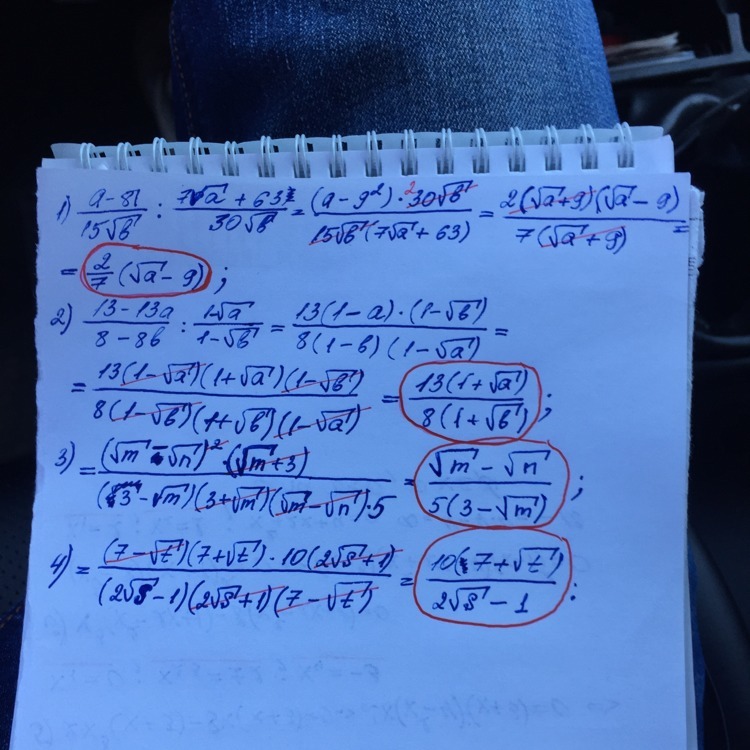 1) (a-81)/(15√b) : (7√a+63)/(30√b) = ((a-9²)·²30√b)/(15√b(7√a+63)) = (2(√a+9)(√a-9))/(7(√a+9)) =
= 2/7 (√a-9);
2) (13-13a)/(8-8b) : (1-√a)/(1-√b) = (13(1-a)·(1-√b))/(8(1-b)(1-√a)) =
= (13(1-√a)(1+√a)(1-√b))/(8(1-√b)(1+√b)(1-√a)) = (13(1+√a))/(8(1+√b));
3) = ((√m-√n)²·(√m+3))/((3-√m)(3+√m)(√m-√n)·5) = (√m-√n)/(5(3-√m));
4) = ((7-√t)(7+√t)·10(2√s+1))/((2√s-1)(2√s+1)(7-√t)) = (10(7+√t))/(2√s-1):